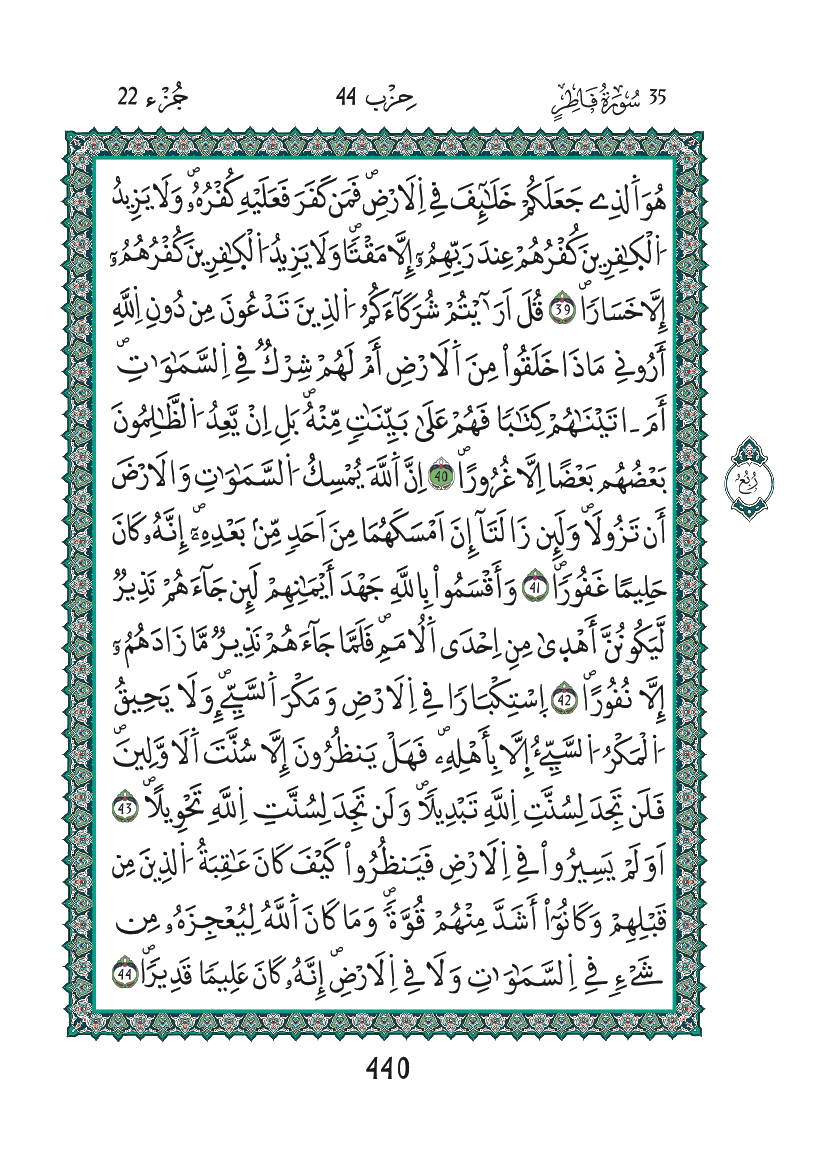 35 سُورَةُ فَاطِرٍ
حِزْب 44
جُزْء 22
هُوَ اَ۬لذِے جَعَلَكُمْ خَلَٰٓئِفَ فِے اِ۬لَارْضِۖ فَمَن كَفَرَ فَعَلَيْهِ كُفْرُهُۥۖ وَلَا يَزِيدُ
اُ۬لْكٰ۪فِرِينَ كُفْرُهُمْ عِندَ رَبِّهِمُۥٓ إِلَّا مَقْتاٗۖ وَلَا يَزِيدُ اُ۬لْكٰ۪فِرِينَ كُفْرُهُمُۥٓ
إِلَّا خَسَاراٗۖ 39 قُلَ اَرَٰٓيْتُمْ شُرَكَآءَكُمُ اُ۬لذِينَ تَدْعُونَ مِن دُونِ اِ۬للَّهِ
أَرُونِے مَاذَا خَلَقُواْ مِنَ اَ۬لَارْضِ أَمْ لَهُمْ شِرْكٞ فِے اِ۬لسَّمَٰوَٰتِۖ
أَمَ اٰتَيْنَٰهُمْ كِتَٰباٗ فَهُمْ عَلَىٰ بَيِّنَٰتٖ مِّنْهُۖ بَلِ اِنْ يَّعِدُ اُ۬لظَّٰلِمُونَ
بَعْضُهُم بَعْضاً اِلَّا غُرُوراًۖ 40 اِنَّ اَ۬للَّهَ يُمْسِكُ اُ۬لسَّمَٰوَٰتِ وَالَارْضَ
رُبُع
أَن تَزُولَاۖ وَلَئِن زَالَتَآ إِنَ اَمْسَكَهُمَا مِنَ اَحَدٖ مِّنۢ بَعْدِهِۦٓۖ إِنَّهُۥ كَانَ
حَلِيماً غَفُوراٗۖ 41 وَأَقْسَمُواْ بِاللَّهِ جَهْدَ أَيْمَٰنِهِمْ لَئِن جَآءَهُمْ نَذِيرٞ
لَّيَكُونُنَّ أَهْد۪ىٰ مِنِ اِحْدَى اَ۬لُامَمِۖ فَلَمَّا جَآءَهُمْ نَذِيرٞ مَّا زَادَهُمُۥٓ
إِلَّا نُفُوراًۖ 42 اِ۪سْتِكْبَاراٗ فِے اِ۬لَارْضِ وَمَكْرَ اَ۬لسَّيِّےِٕۖ وَلَا يَحِيقُ
اُ۬لْمَكْرُ اُ۬لسَّيِّۓُ إِلَّا بِأَهْلِهِۦۖ فَهَلْ يَنظُرُونَ إِلَّا سُنَّتَ اَ۬لَاوَّلِينَۖ
فَلَن تَجِدَ لِسُنَّتِ اِ۬للَّهِ تَبْدِيلاٗۖ وَلَن تَجِدَ لِسُنَّتِ اِ۬للَّهِ تَحْوِيلاًۖ 43
اَوَلَمْ يَسِيرُواْ فِے اِ۬لَارْضِ فَيَنظُرُواْ كَيْفَ كَانَ عَٰقِبَةُ اُ۬لذِينَ مِن
قَبْلِهِمْ وَكَانُوٓاْ أَشَدَّ مِنْهُمْ قُوَّةٗۖ وَمَا كَانَ اَ۬للَّهُ لِيُعْجِزَهُۥ مِن
شَےْءٖ فِے اِ۬لسَّمَٰوَٰتِ وَلَا فِے اِ۬لَارْضِۖ إِنَّهُۥ كَانَ عَلِيماٗ قَدِيراٗۖ 44
440